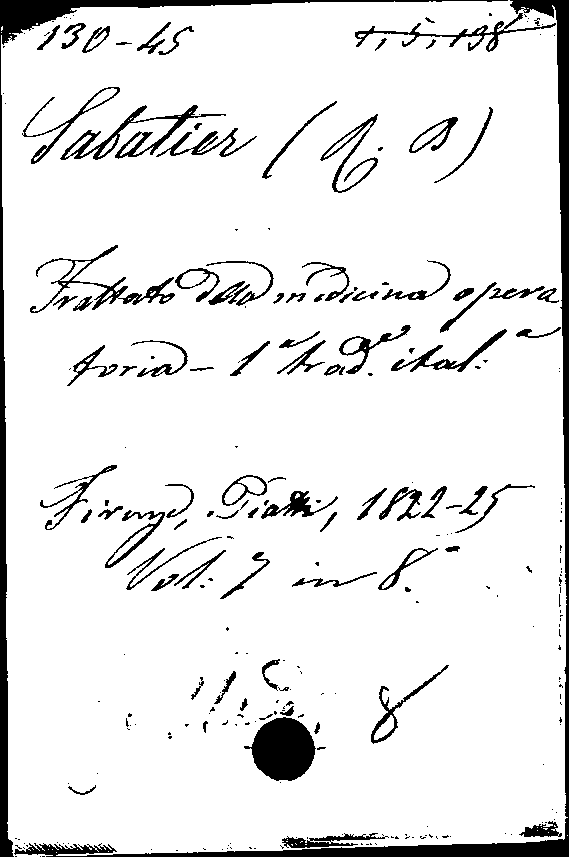 130-45 1, 5, 138
Sabatier (R. B)
Trattato della medicina opera
toria - 1ª trad.ⁿᵉ ital:ª
Firenze, Piatti, 1822-25
Vol: 7 in 8.°
Med. 8